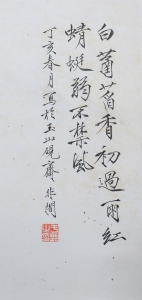 白菡萏香初過雨紅
蜻蜓弱不禁風
丁亥春月寫於玉山硯齋非闇